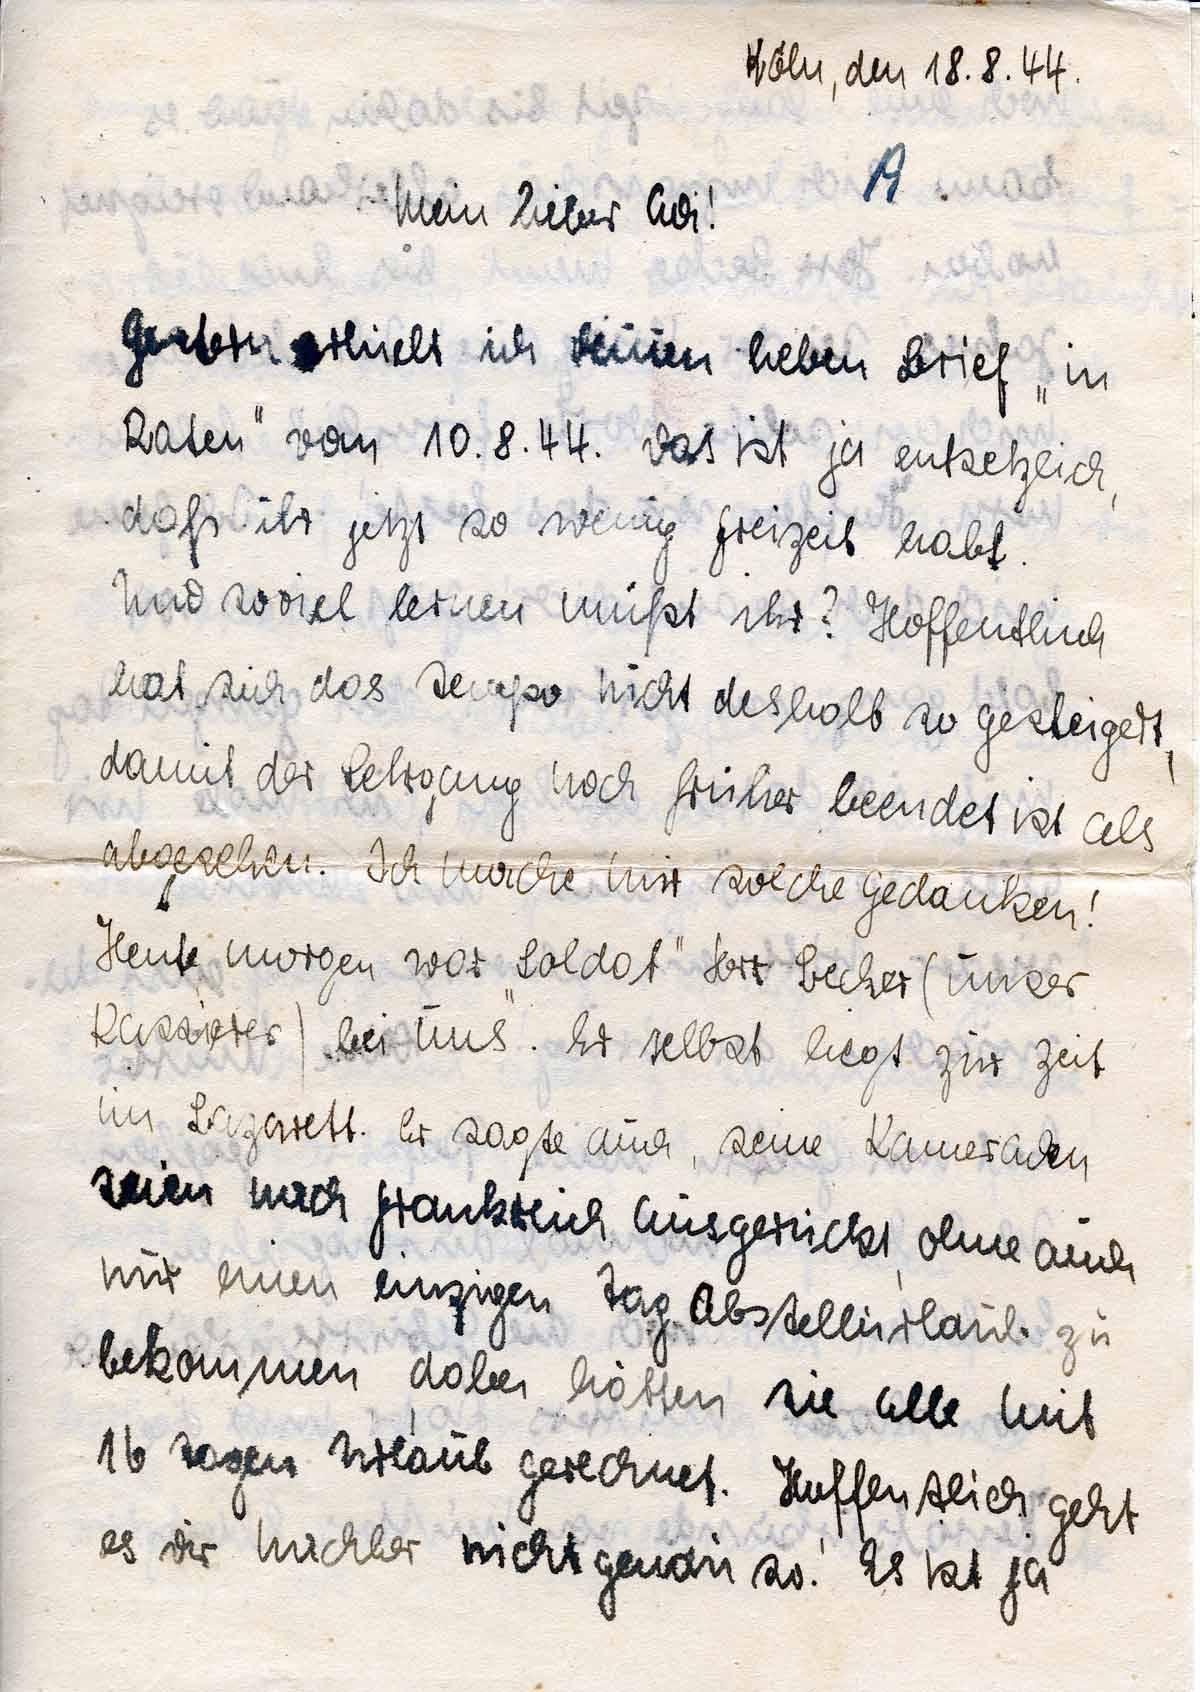 Köln, den 18.8.44.
A
Mein lieber Adi!
Gestern erhielt ich deinen lieben Brief „in
Raten" vom 10.8.44. Das ist ja entsetzlich,
daß ihr jetzt so wenig Freizeit habt.
Und soviel lernen müßt ihr? Hoffentlich
hat sich das Tempo nicht deshalb so gesteigert,
damit der Lehrgang noch früher beendet ist als
abgesehen. Ich mache mir solche Gedanken!
Heute morgen war „Soldat" Herr Becker (unser
Kassierer) bei uns. Er selbst liegt zur Zeit
im Lazarett. Er sagte auch, seine Kameraden
seien nach Frankreich ausgerückt, ohne auch
nur einen einzigen Tag Abstellurlaub zu
bekommen, dabei hätten sie alle mit
16 Tagen Urlaub gerechnet. Hoffentlich geht
es dir nachher nicht genau so! Es ist ja